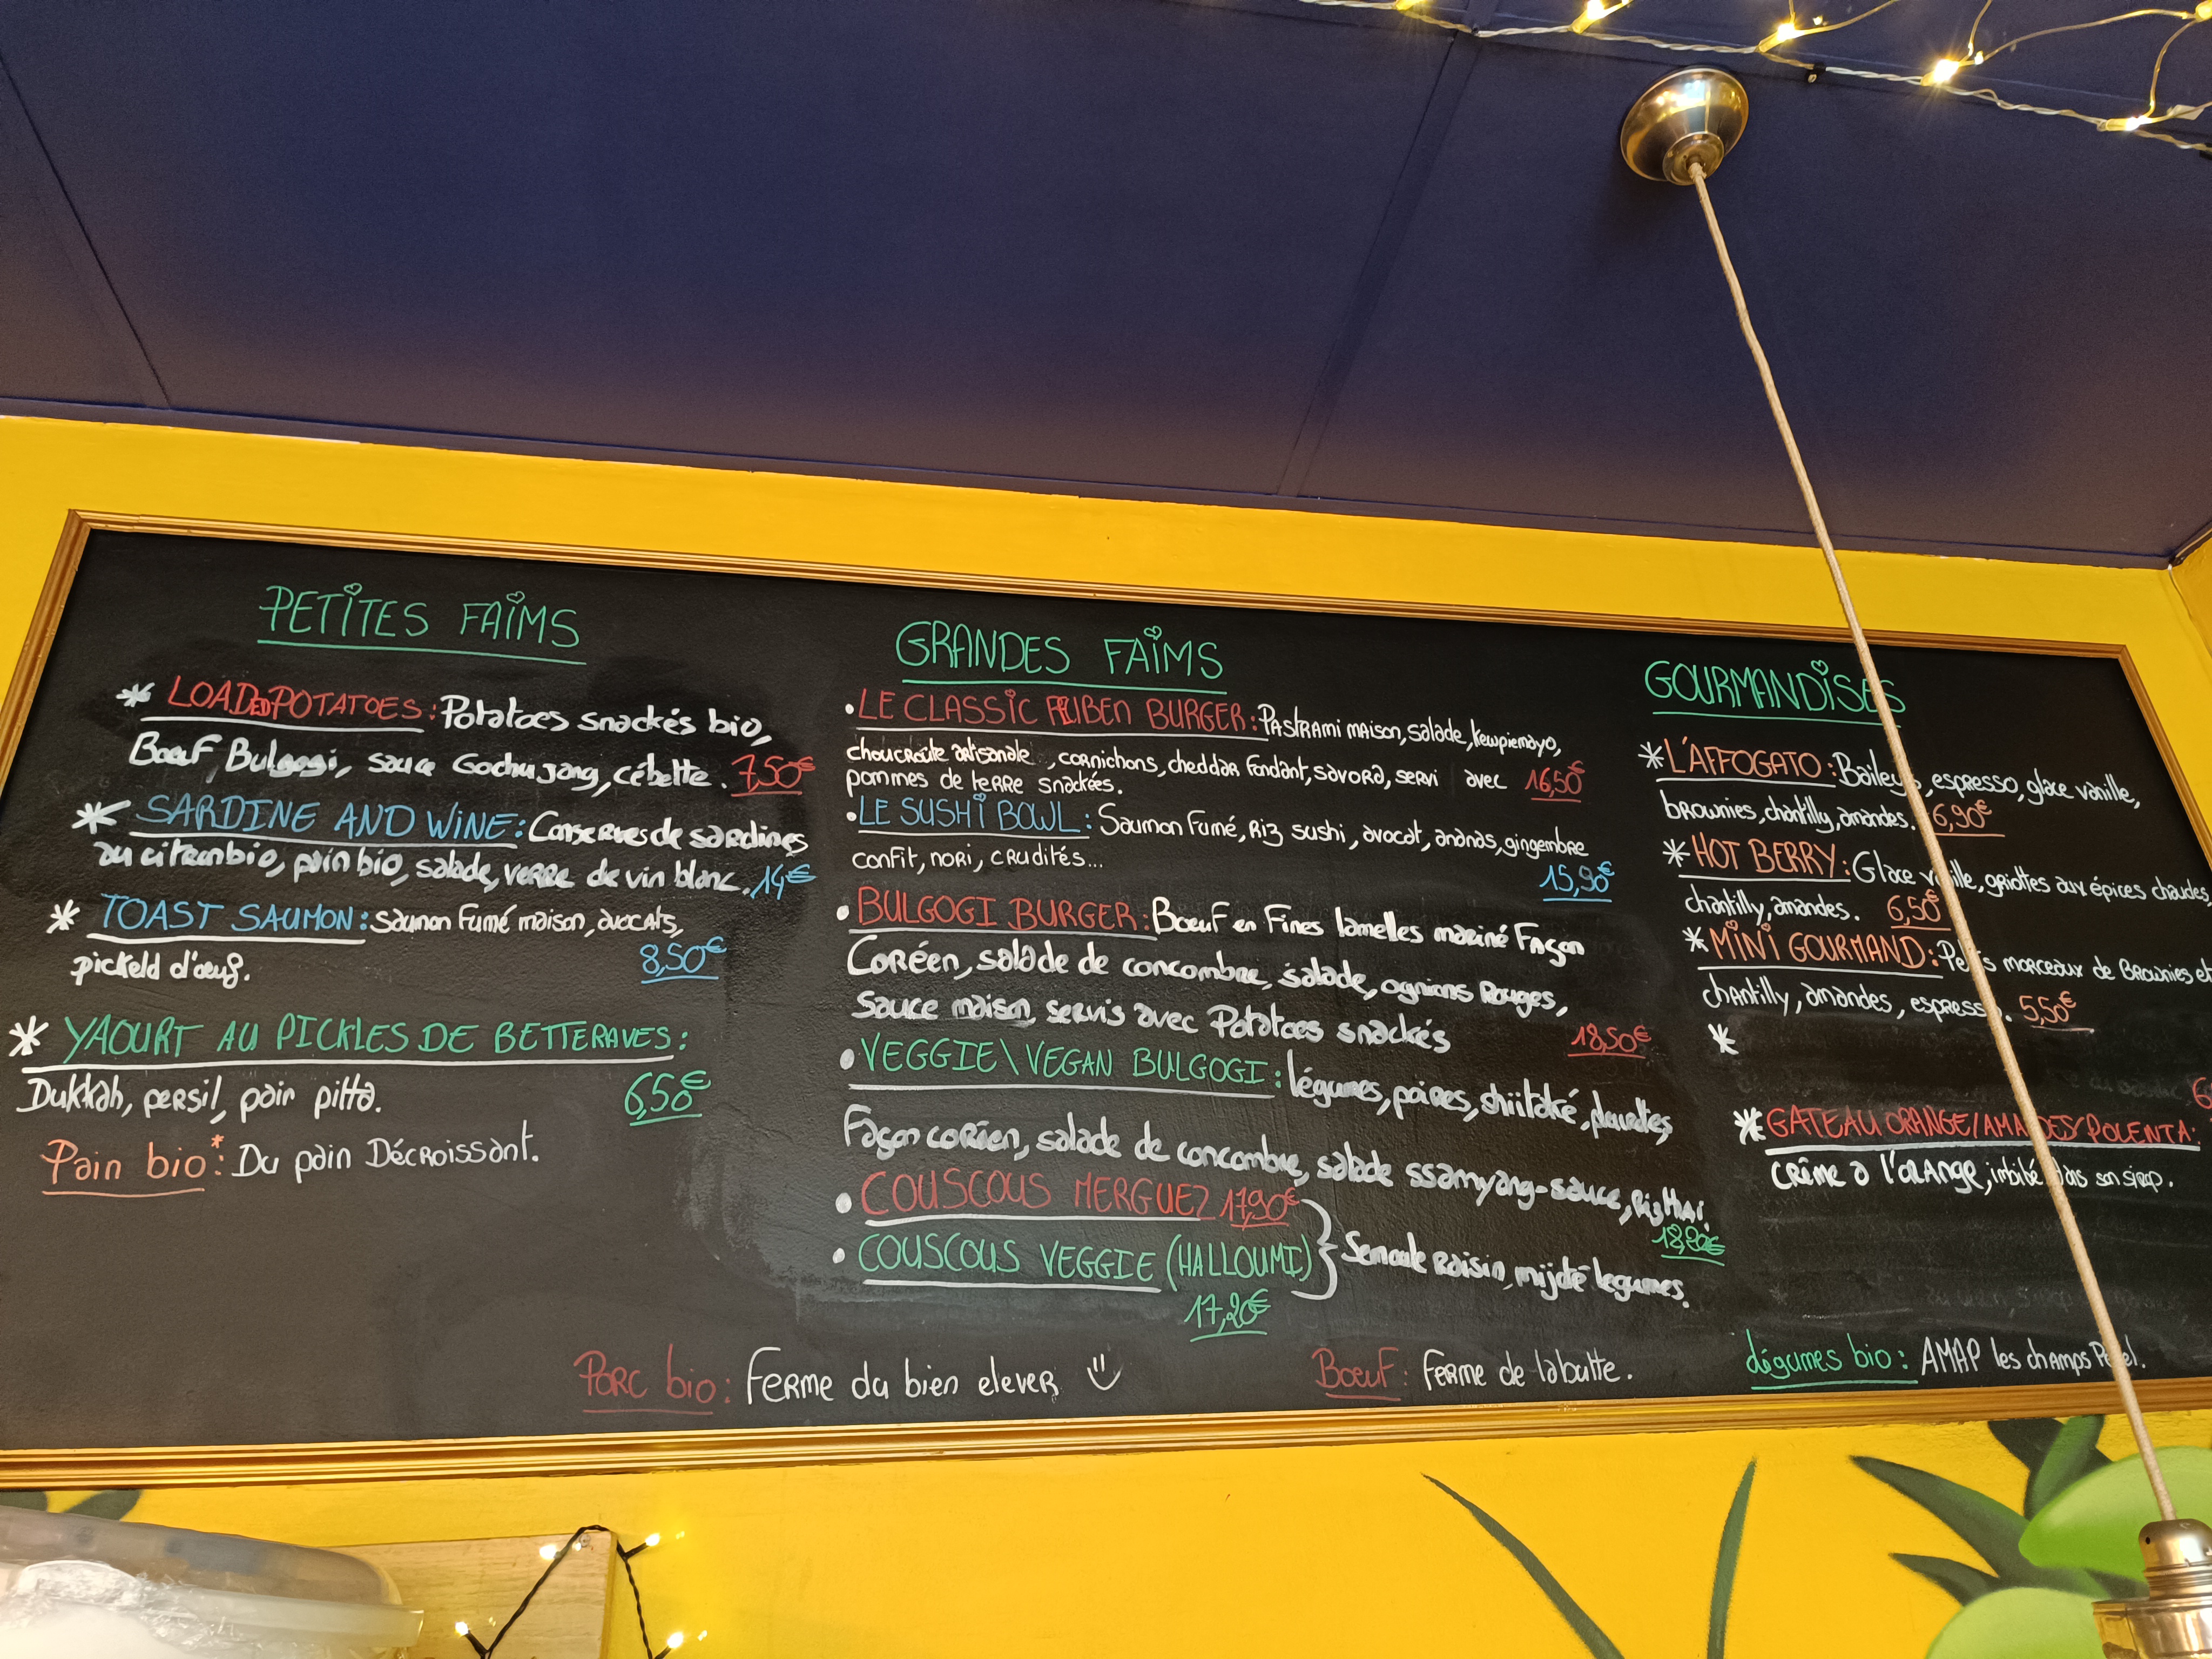 PETITES FAIMS
* LOADED POTATOES : Potatoes snackés bio,
Bœuf Bulgogi, sauce Gochujang, cébette. 7,50€
* SARDINE AND WINE : Conserves de sardines
au citron bio, pain bio, salade, verre de vin blanc. 14€
* TOAST SAUMON : Saumon Fumé maison, avocats,
pickeld d'œuf. 8,50€
* YAOURT AU PICKLES DE BETTERAVES :
Dukkah, persil, pain pitta. 6,50€
Pain bio* : Du pain Décroissant.
GRANDES FAIMS
• LE CLASSIC RUBEN BURGER : Pastrami maison, salade, kewpie mayo,
choucroute artisanale, cornichons, cheddar fondant, savora, servi avec 16,50€
pommes de terre snackées.
• LE SUSHI BOWL : Saumon Fumé, Riz sushi, avocat, ananas, gingembre
confit, nori, crudités... 15,90€
• BULGOGI BURGER : Bœuf en Fines lamelles mariné Façon
Coréen, salade de concombre, salade, ognions Rouges,
Sauce maison, servis avec Potatoes snackés 18,50€
• VEGGIE\VEGAN BULGOGI : légumes, poires, shiitaké,
Façon coréen, salade de concombre, salade ssamyang-sauce, Riz thaï.
• COUSCOUS MERGUEZ 17,90€
• COUSCOUS VEGGIE (HALLOUMI) } Semoule raisin, mijoté légumes.
17,20€
GOURMANDISES
* L'AFFOGATO : Baileys, espresso, glace vanille,
brownies, chantilly, amandes. 6,90€
* HOT BERRY : Glace vanille, griottes aux épices chaudes,
chantilly, amandes. 6,50€
* MINI GOURMAND : Petits morceaux de Brownies et
chantilly, amandes, espresso. 5,50€
*
6
* GATEAU ORANGE/AMANDES/POLENTA :
crème à l'orange, imbibé dans son sirop.
Porc bio : Ferme du bien elever
Bœuf : Ferme de labutte.
légumes bio : AMAP les champs